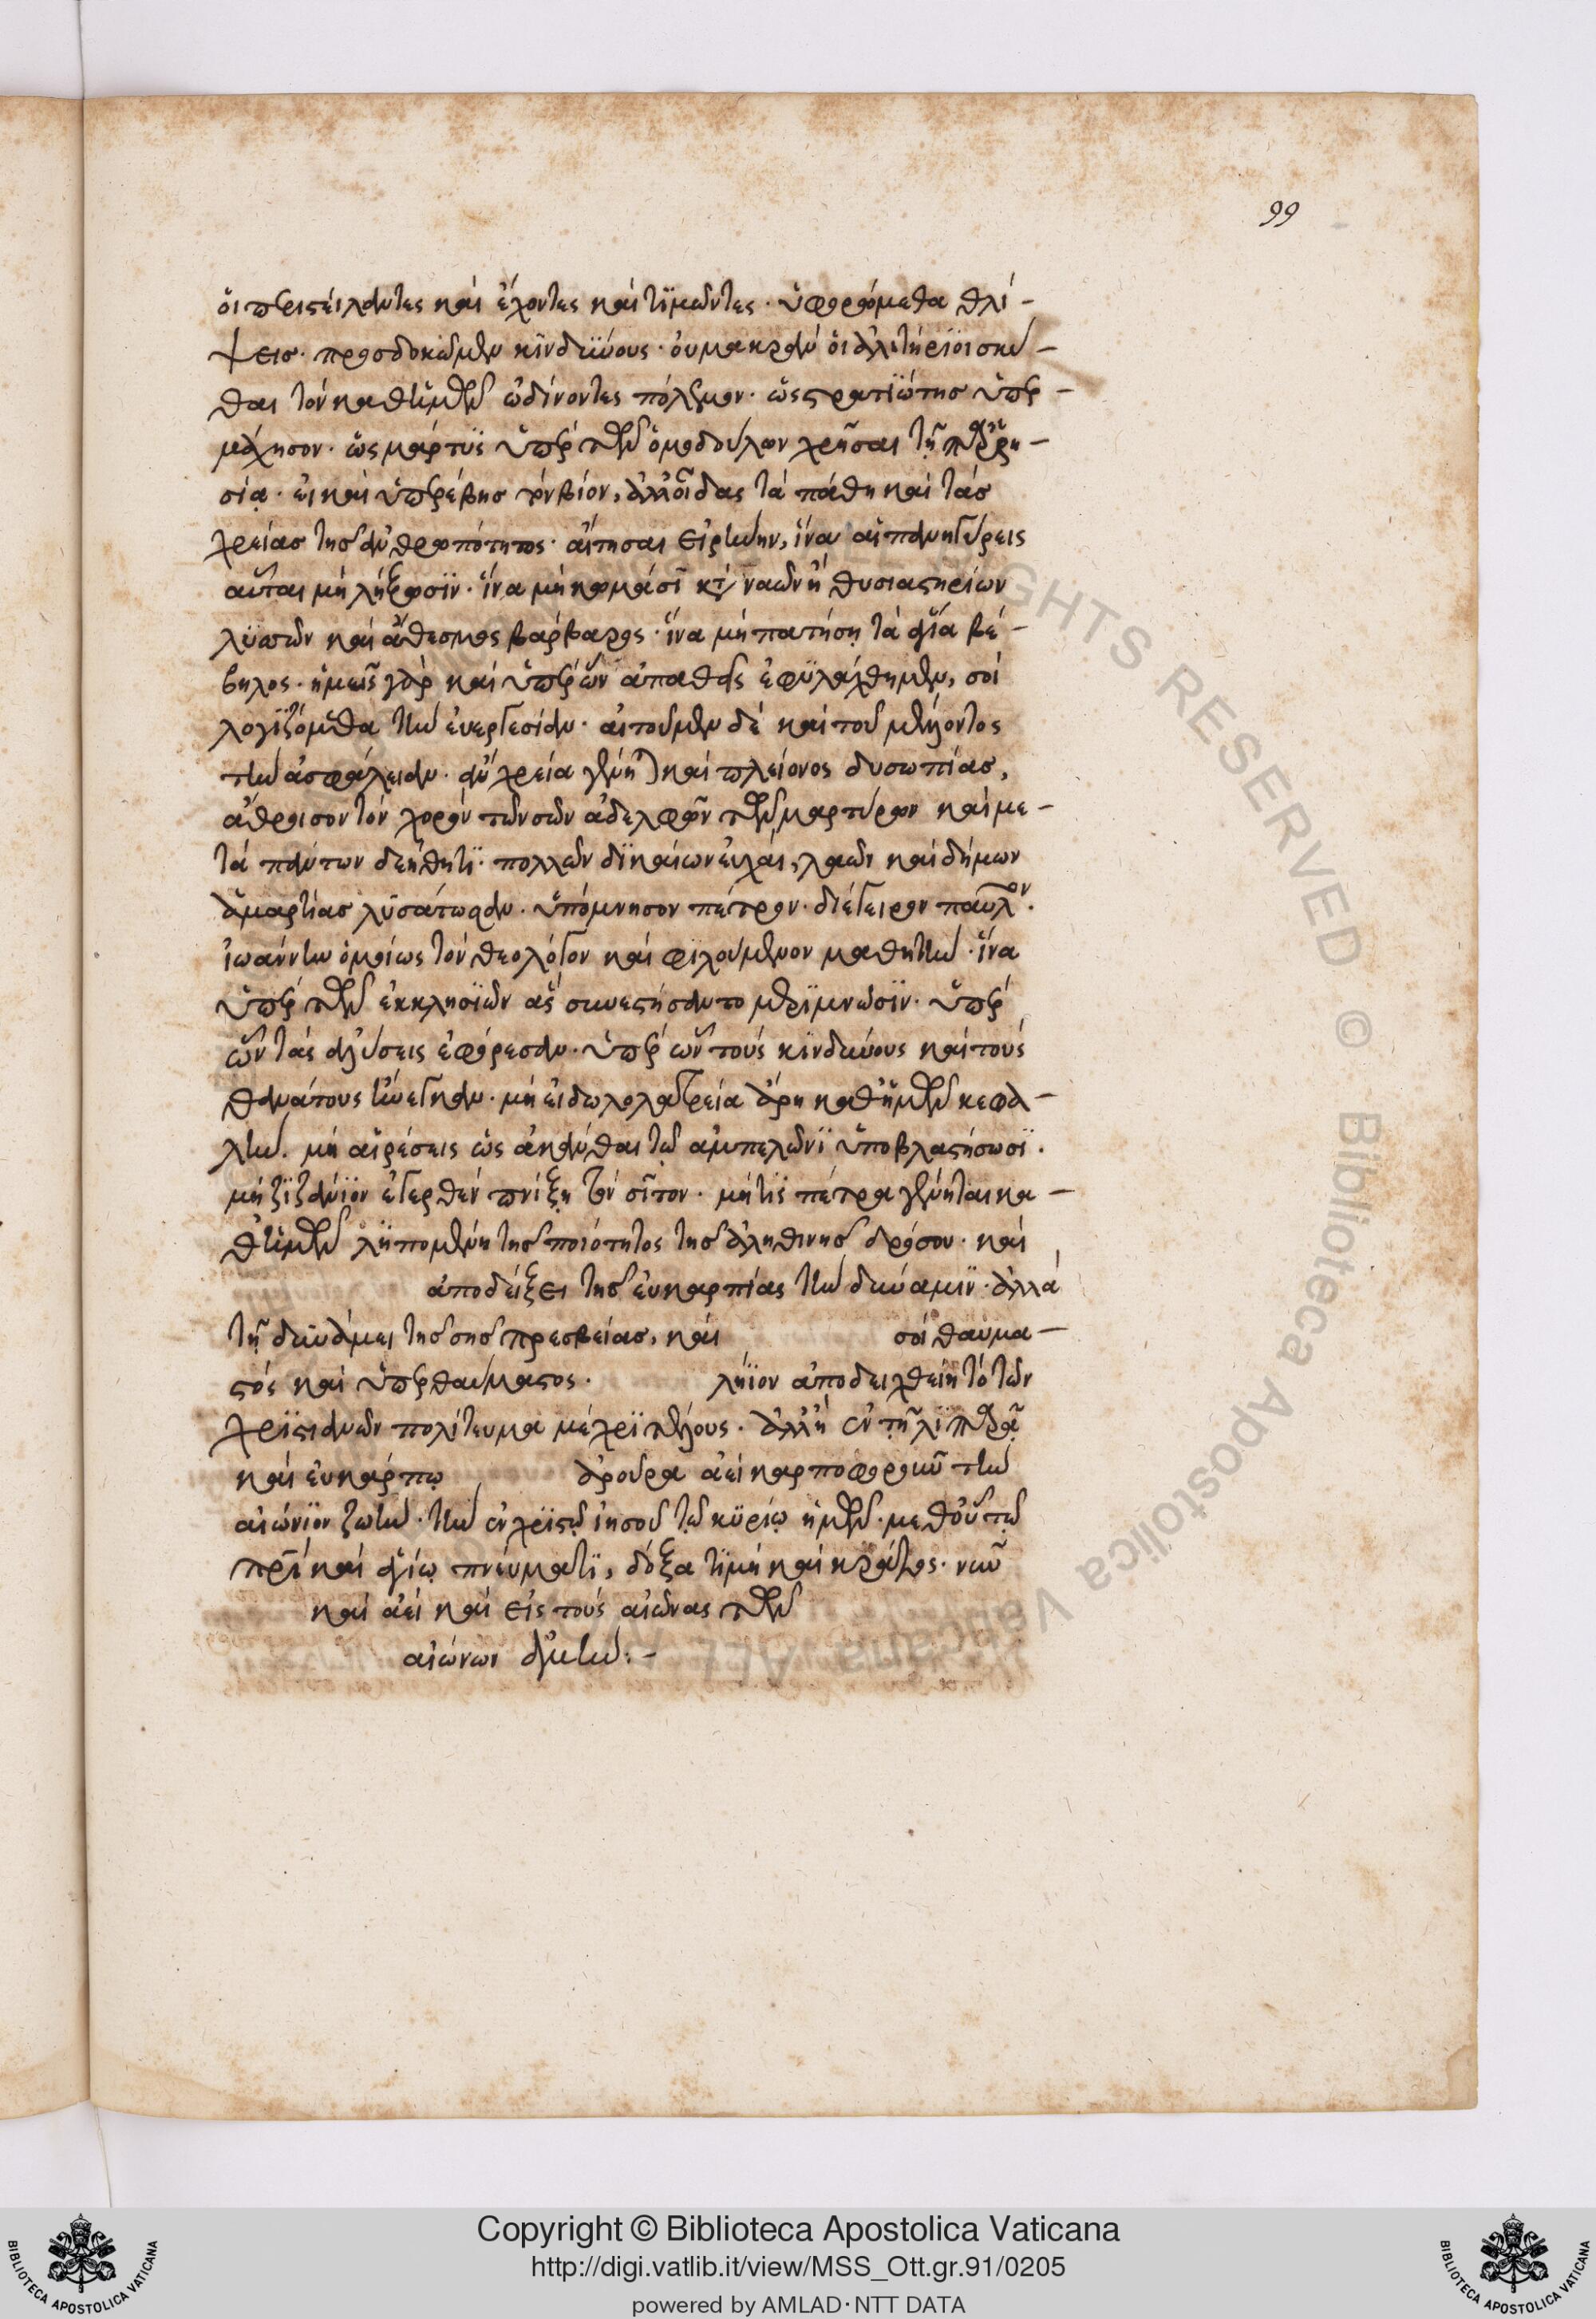 99
ὁι περιστείλαντες καὶ ἔχοντες καὶ τϊμῶντες · ὑφορόμεθα θλί -
ψεισ · προσδοκῶμεν κϊνδϋνους · ὀυ μακρὰν ὁι ἀλιτήρϊοι σκύ -
θαι τὸν καθημῶν ὠδίνοντες πόλεμον · ὡς στρατϊώτησ ὑπερ -
μάχησον · ὡς μάρτϋς ὑπὲρ τῶν ὁμοδούλων χρῆσαι τῇ παρρη -
σίᾳ · εἰ καὶ ὑπερέβησ τὸν βίον, ἀλλοῖδας τὰ πάθη καὶ τὰσ
χρείασ τῆσ ἀνθροπότητος · αἴτησαι εἰρήνην, ἵνα αἱ πανηγύρεις
αὗται μὴ λήξωσϊν · ἵνα μὴ κωμάσῃ κατὰ ναῶν ἢ θυσιαστηρίων
λϋσσῶν καὶ ἄθεσμος βάρβαρος · ἵνα μὴ πατήσῃ τὰ ἅγια βέ -
βηλος · ἡμεῖς γὰρ καὶ ὑπὲρ ὧν ἀπαθεῖς ἐφϋλάχθημεν, σοὶ
λογιζόμεθα τὴν ἐυεργεσίαν · αἰτοῦμεν δὲ καὶ τοῦ μέλλοντος
τὴν ἀσφάλειαν · ἂν χρεία γένηται καὶ πλείονος δυσωπίασ,
ἄθροισον τὸν χορὸν τῶν σῶν ἀδελφῶν τῶν μαρτύρων καὶ με -
τὰ πάντων δεήθητϊ · πολλῶν δϊκαίων ἐυχαὶ, λαῶν καὶ δήμων
ἁμαρτίασ λϋσάτωσαν · ὑπόμνησον πέτρον · διέγειρον παῦλον ·
ἰωάννην ὁμοίως τὸν θεολόγον καὶ φιλούμενον μαθητὴν · ἵνα
ὑπὲρ τῶν ἐκκλησϊῶν ἃς συνεστήσαντο μερϊμνῶσϊν · ὑπὲρ
ὧν τὰς ἁλύσεις ἐφόρεσαν · ὑπὲρ ὧν τοὺς κϊνδύνους καὶ τοὺς
θανάτους ἤνεγκαν · μὴ ἐιδωλολατρεία ἄρη καθἡμῶν κεφα -
λὴν · μὴ αἱρέσεις ὡς ἄκανθαι τῷ ἀμπελῶνϊ ὑποβλαστήσωσϊ ·
μὴ ζϊζάνϊον ἐγερθὲν πνίξῃ τὸν σῖτον · μὴ τὶς πέτρα γένηται κα -
θημῶν λϋπομένη τῆσ ποιότητος τῆσ ἀληθινῆσ δρόσου · καὶ
ἀποδείξει τῆσ ἐυκαρπίας τὴν δύναμϊν · ἀλλὰ
τῇ δυνάμει τῆσ σῆσ πρεσβείασ, καὶ σοὶ θαυμα -
στὸς καὶ ὑπερθαύμαστος · λήϊον ἀποδειχθείη τὸ τῶν
χρϊστιανῶν πολίτευμα μέχρϊ τέλους ·
καὶ ἐυκάρπῳ ἀρούρα ἀεὶ καρποφοροῦν τὴν
αἰώνϊον ζωὴν · τὴν ἐν χρϊστῷ ἰησοῦ τῷ κϋρίῳ ἡμῶν · μεθοὗ τῷ
πρὶ καὶ ἁγίῳ πνέυματϊ, δόξα τϊμὴ καὶ κράτος · νῦν
καὶ ἀεὶ καὶ εἰς τοὺς αἰῶνας τῶν
αἰώνων ἀμήν : -
ALL RIGHTS RESERVED © Biblioteca Apostolica Vaticana
BIBLIOTECA APOSTOLICA VATICANA
Copyright © Biblioteca Apostolica Vaticana
http://digi.vatlib.it/view/MSS_Ott.gr.91/0205
powered by AMLAD·NTT DATA
BIBLIOTECA APOSTOLICA VATICANA